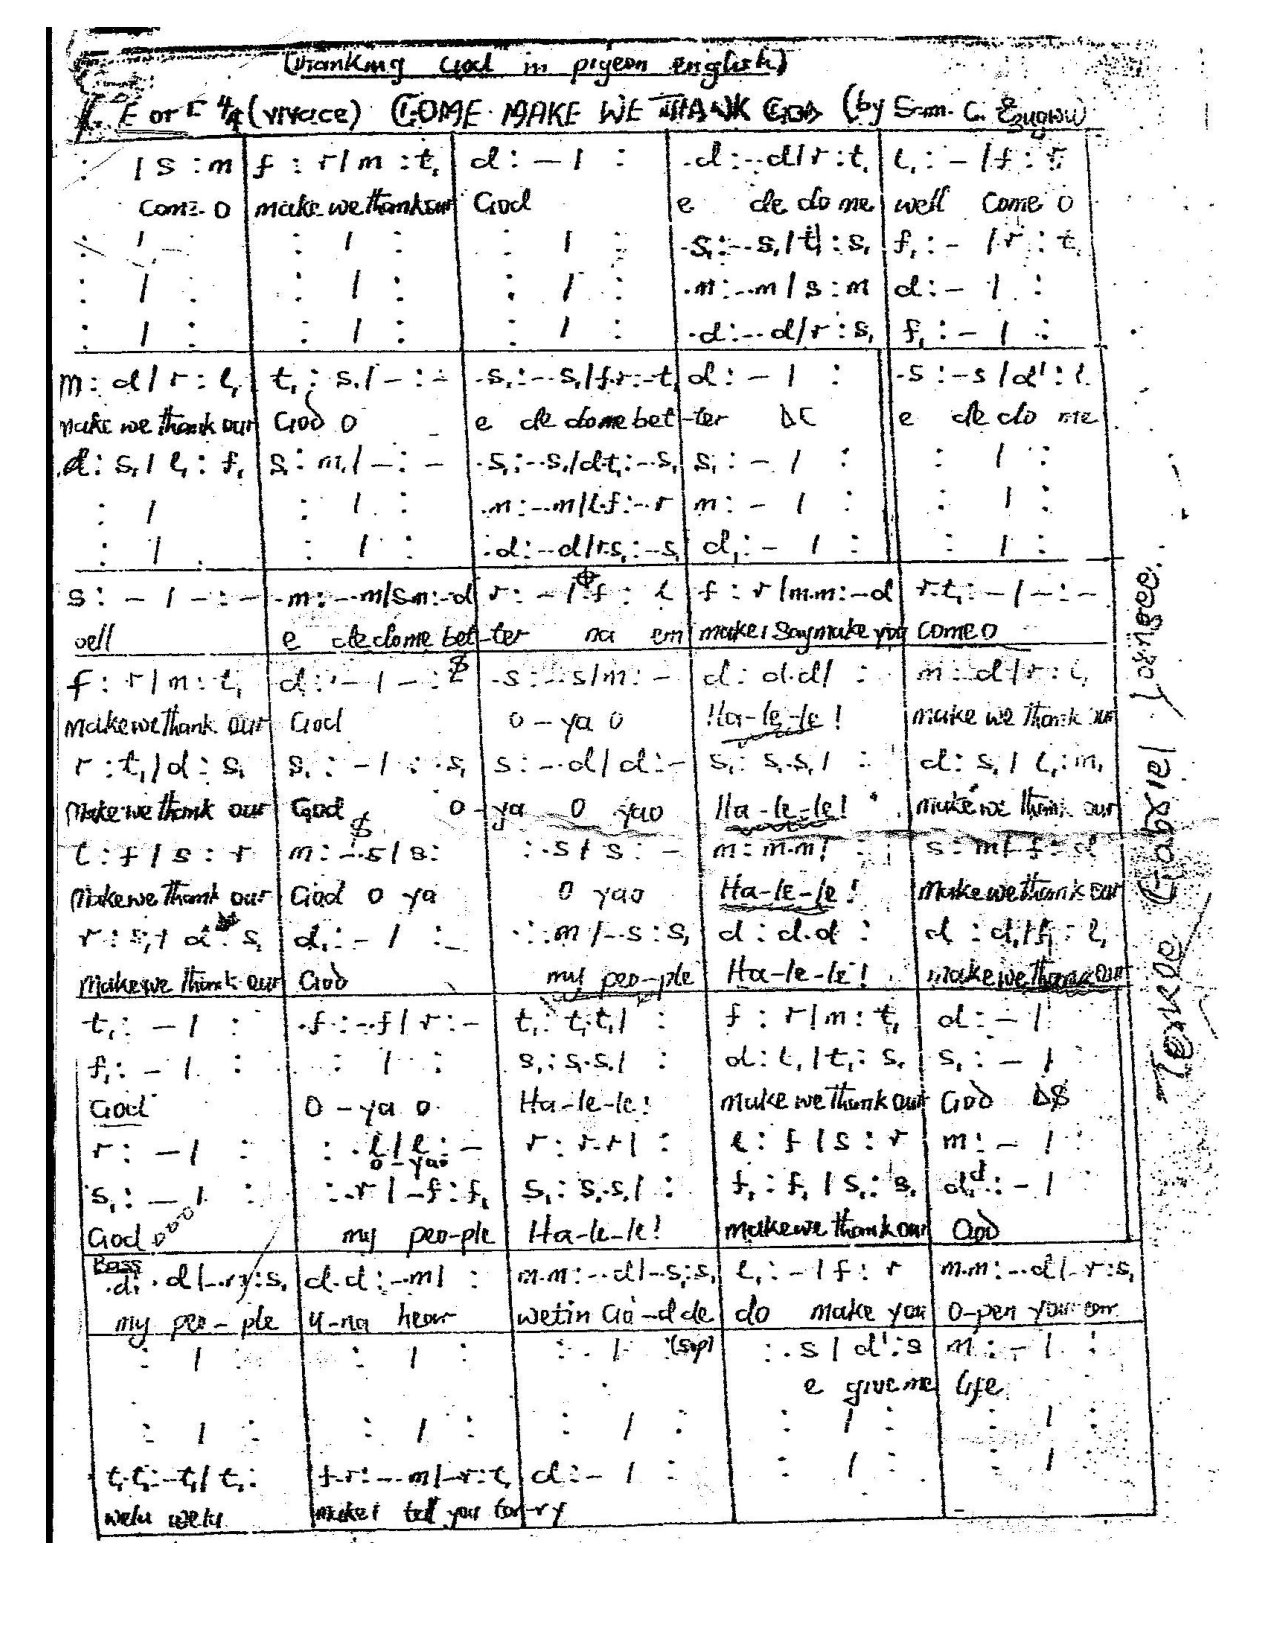 (thanking God in pigeon english)
E or F 4/4 (vivace) COME MAKE WE THANK GOD (by Sam. C.
: / s : m | f : r / m : t, | d : - / : | .d : -.d / r : t, | l, : - / f : r
Come O | make we thank our | God | e de do me | well Come O
: / : | : / : | : / : | .s, : -.s, / t, : s, | f, : - / r : t,
: / : | : / : | : / : | .m : -.m / s : m | d : - / :
: / : | : / : | : / : | .d : -.d / r : s, | f, : - / :
m : d / r : l, | t, : s, / - : - | .s, : -.s, / f.r : -.t, | d : - / : | .s : -.s / d' : l
make we thank our | God O | e de do me bet | -ter DC | e de do me
d : s, / l, : f, | s, : m, / - : - | .s, : -.s, / d.t, : -.s, | s, : - / : | : / :
: / | : / : | .m : -.m / l.f : -.r | m : - / : | : / :
: / | : / : | .d : -.d / r.s, : -.s, | d, : - / : | : / :
s : - / - : - | .m : -.m / s.m : -.d | r : - / f : l | f : r / m.m : -.d | r.t, : - / - : -
well | e de do me bet | -ter na em | make i say make you | come o
f : r / m : t, | d : - / - : | .s : -.s / m : - | d : d.d / : | m : d / r : l,
make we thank our | God | O - ya O | Ha-le-le! | make we thank our
r : t, / d : s, | s, : - / : .s, | s : -.d / d : - | s, : s,.s, / : | d : s, / l, : m,
Make we thank our | God O | -ya O yao | Ha-le-le! | make we thank our
l : f / s : r | m : -.s / s : | : .s / s : - | m : m.m / : | s : m / f : d
Make we thank our | God O ya | O yao | Ha-le-le! | Make we thank our
r : s, / d : s, | d, : - / : | : .m / -.s : s, | d : d.d : | d : d, / f, : l,
Make we thank our | God | my peo-ple | Ha-le-le! | make we thank our
t, : - / : | .f : -.f / r : - | t, : t,.t, / : | f : r / m : t, | d : - /
f, : - / : | : / : | s, : s,.s, / : | d : l, / t, : s, | s, : - /
God | O - ya O | Ha-le-le! | make we thank our | God DS
r : - / : | : .l / l : - | r : r.r / : | l : f / s : r | m : - / :
O - yao
s, : - / : | : .r / -.f : f, | s, : s,.s, / : | f, : f, / s, : s, | d, : - /
God | my peo-ple | Ha-le-le! | make we thank our | God
Bass
.d : .d / -.r : s, | d.d : -.m / : | m.m : -.d / -.s, : s, | l, : - / f : r | m.m : -.d / -.r : s,
my peo - ple | u-na hear | wetin Go-d de | do make you | o-pen your ear
: / : | : / : | : / (sop) | : .s / d' : s | m : - / :
e give me | life
: / : | : / : | : / : | : / : | : / :
t,.t, : -.t, / t, : | f.r : -.m / -.r : t, | d : - / : | : / : | : / :
welu welu | make i tell you to | -ry
Gabriel